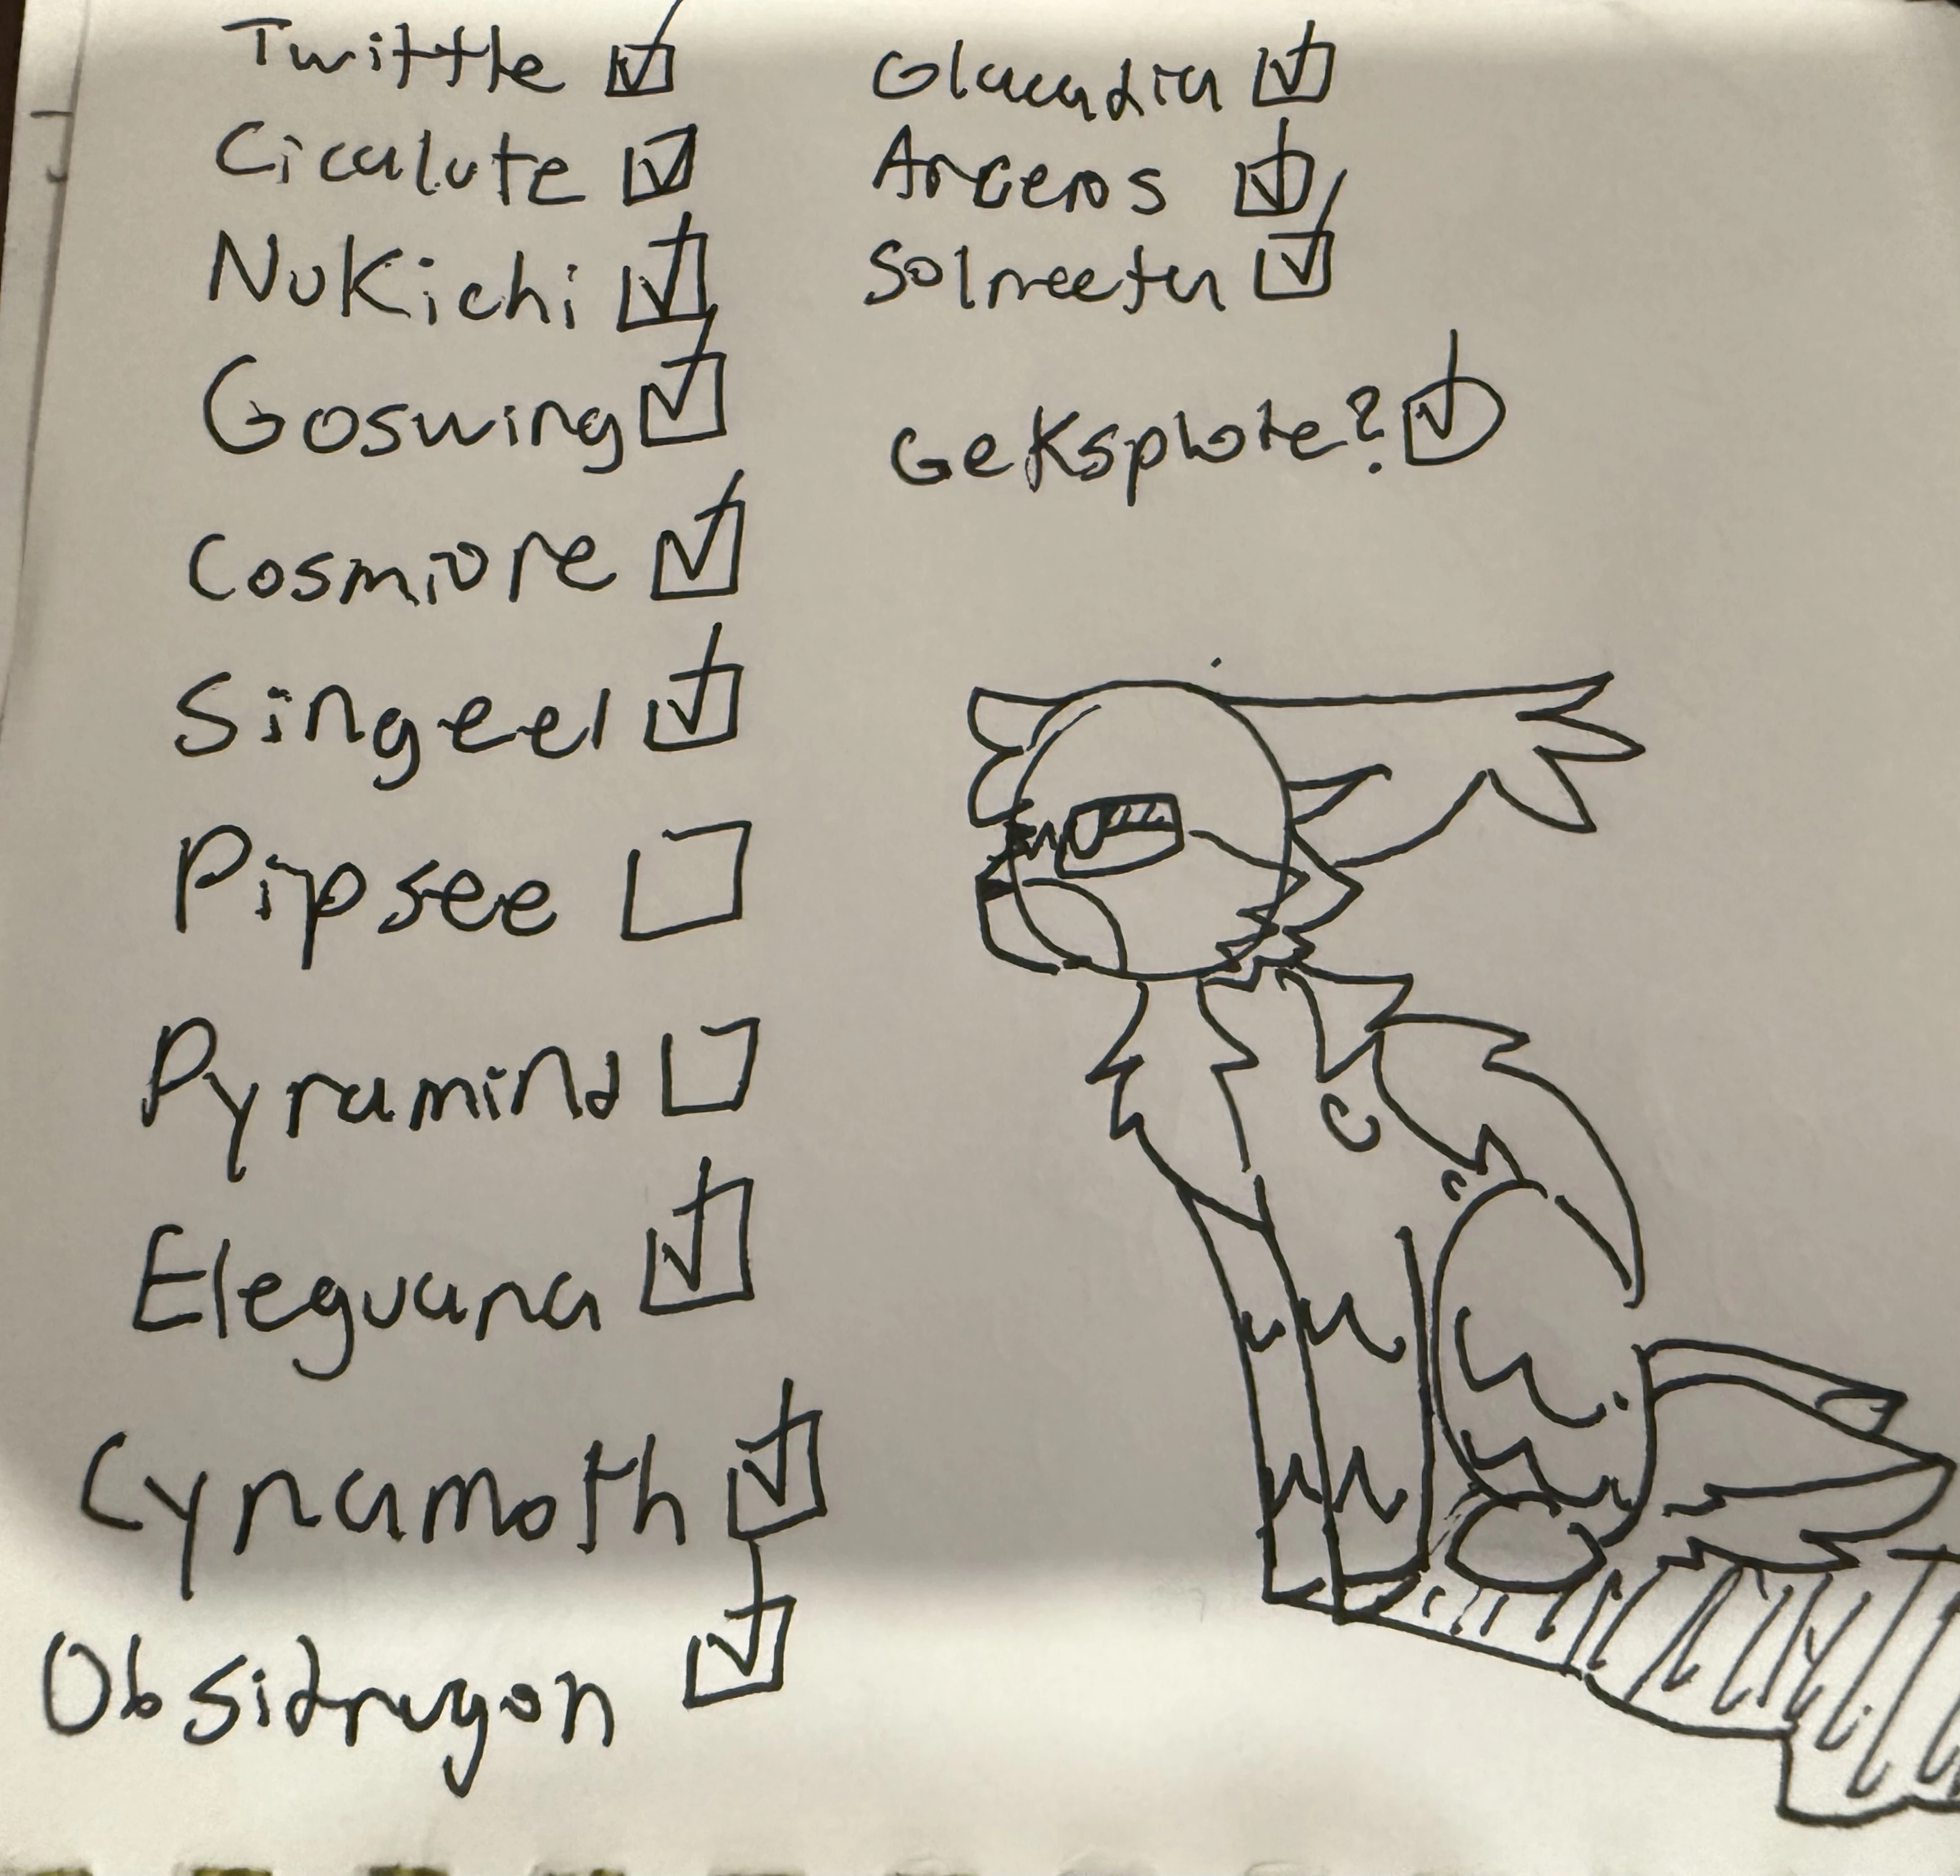 Twittle
Cicalute
Nukichi
Goswing
Cosmiore
Singeel
Pipsee
Pyramind
Eleguana
Cynamoth
Obsidragon
Glacadia
Arceros
Solmeeta
Geksplote?